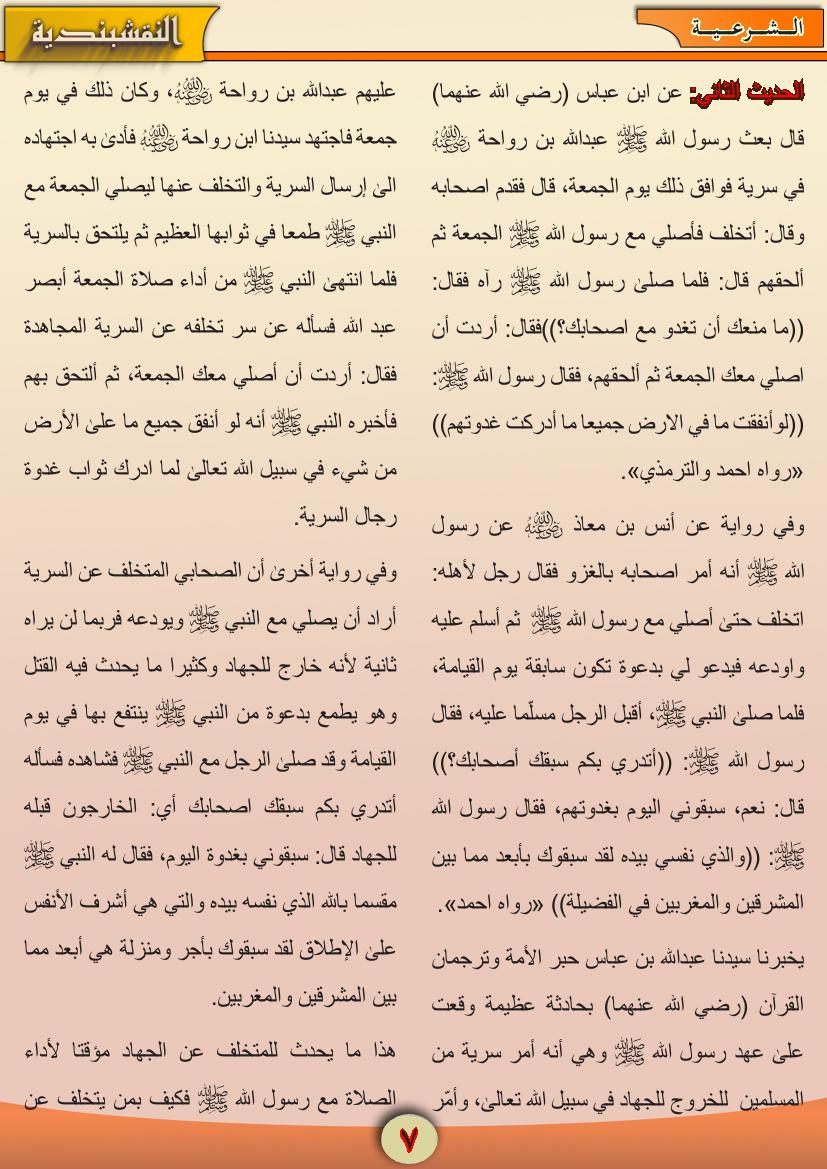 الـشــرعـيــة
النقشبندية
الحديث الثاني: عن ابن عباس (رضي الله عنهما)
قال بعث رسول الله ﷺ عبدالله بن رواحة رضي الله عنه
في سرية فوافق ذلك يوم الجمعة، قال فقدم اصحابه
وقال: أتخلف فأصلي مع رسول الله ﷺ الجمعة ثم
ألحقهم قال: فلما صلىٰ رسول الله ﷺ رآه فقال:
((ما منعك أن تغدو مع اصحابك؟))فقال: أردت أن
اصلي معك الجمعة ثم ألحقهم، فقال رسول الله ﷺ:
((لوأنفقت ما في الارض جميعا ما أدركت غدوتهم))
«رواه احمد والترمذي».
وفي رواية عن أنس بن معاذ رضي الله عنه عن رسول
الله ﷺ أنه أمر اصحابه بالغزو فقال رجل لأهله:
اتخلف حتىٰ أصلي مع رسول الله ﷺ ثم أسلم عليه
واودعه فيدعو لي بدعوة تكون سابقة يوم القيامة،
فلما صلىٰ النبي ﷺ، أقبل الرجل مسلّما عليه، فقال
رسول الله ﷺ: ((أتدري بكم سبقك أصحابك؟))
قال: نعم، سبقوني اليوم بغدوتهم، فقال رسول الله
ﷺ: ((والذي نفسي بيده لقد سبقوك بأبعد مما بين
المشرقين والمغربين في الفضيلة)) «رواه احمد».
يخبرنا سيدنا عبدالله بن عباس حبر الأمة وترجمان
القرآن (رضي الله عنهما) بحادثة عظيمة وقعت
علىٰ عهد رسول الله ﷺ وهي أنه أمر سرية من
المسلمين للخروج للجهاد في سبيل الله تعالىٰ، وأمّر
عليهم عبدالله بن رواحة رضي الله عنه، وكان ذلك في يوم
جمعة فاجتهد سيدنا ابن رواحة رضي الله عنه فأدىٰ به اجتهاده
الىٰ إرسال السرية والتخلف عنها ليصلي الجمعة مع
النبي ﷺ طمعا في ثوابها العظيم ثم يلتحق بالسرية
فلما انتهىٰ النبي ﷺ من أداء صلاة الجمعة أبصر
عبد الله فسأله عن سر تخلفه عن السرية المجاهدة
فقال: أردت أن أصلي معك الجمعة، ثم ألتحق بهم
فأخبره النبي ﷺ أنه لو أنفق جميع ما علىٰ الأرض
من شيء في سبيل الله تعالىٰ لما ادرك ثواب غدوة
رجال السرية.
وفي رواية أخرىٰ أن الصحابي المتخلف عن السرية
أراد أن يصلي مع النبي ﷺ ويودعه فربما لن يراه
ثانية لأنه خارج للجهاد وكثيرا ما يحدث فيه القتل
وهو يطمع بدعوة من النبي ﷺ ينتفع بها في يوم
القيامة وقد صلىٰ الرجل مع النبي ﷺ فشاهده فسأله
أتدري بكم سبقك اصحابك أي: الخارجون قبله
للجهاد قال: سبقوني بغدوة اليوم، فقال له النبي ﷺ
مقسما بالله الذي نفسه بيده والتي هي أشرف الأنفس
علىٰ الإطلاق لقد سبقوك بأجر ومنزلة هي أبعد مما
بين المشرقين والمغربين.
هذا ما يحدث للمتخلف عن الجهاد مؤقتا لأداء
الصلاة مع رسول الله ﷺ فكيف بمن يتخلف عن
٧